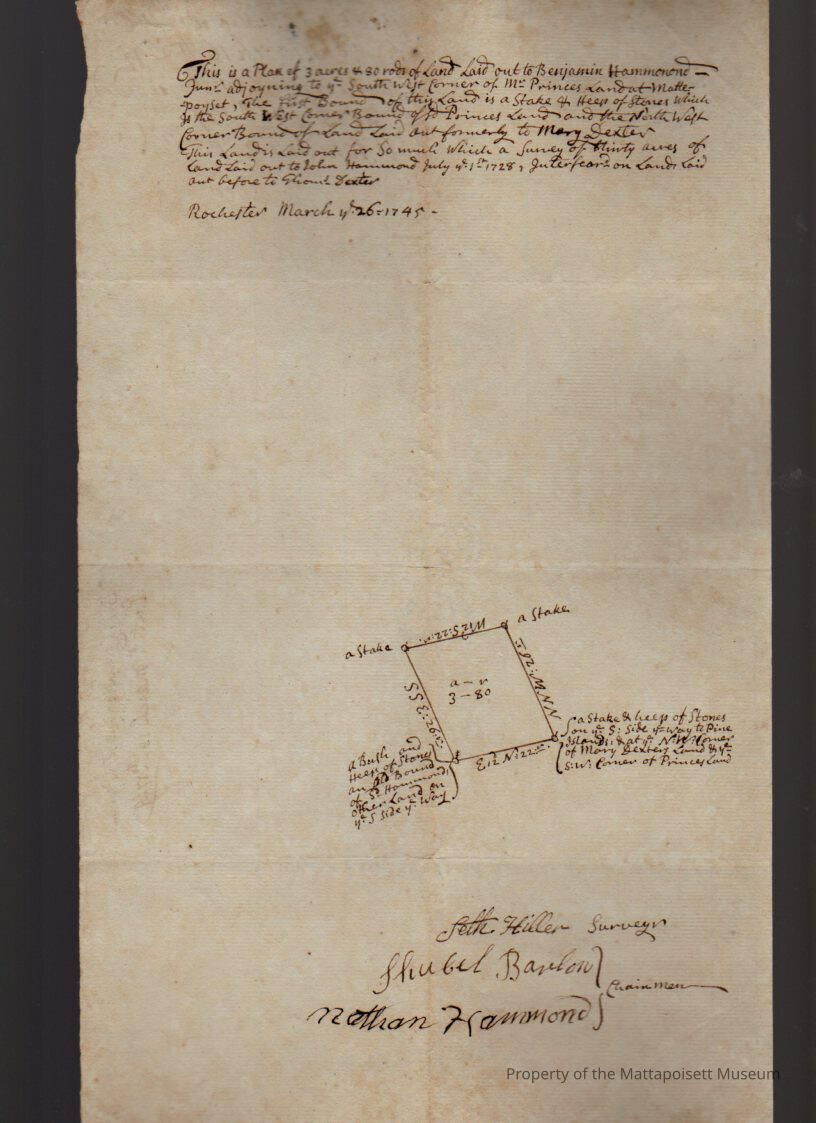 This is a Plan of 3 acres & 80 rods of Land Laid out to Benjamin Hammonond
Junr. adjoyning to ye South West Corner of Mr Princes Land at Matte-
poyset, The first Bound of this Land is a Stake & Heep of Stones Which
Is the South West Corner Bound of sd Princes Land and the North West
Corner Bound of Land Laid out formerly to Mary Dexter
This Land is Laid out for So much Which a Survey of thirty acres of
Land Laid out to John Hammond July ye 1st 1728, Interfear'd on Lands Laid
out before to Dexter
Rochester March ye 26: 1745 -
a Stake
W12S:22:r.
a Stake
SSE:26:r:
a - r
3 - 80
NNW:26:r:
E12 N:22:r:
a Stake & heep of Stones
on ye S: Side ye Way to Pine
Islands: & at ye N:W: Corner
of Mary Dexters Land & ye
S:W: Corner of Princes Land
a Bush and
Heep of Stones
an old Bound
of Sd Hammonds
other Land on
ye S Side ye Way
Seth Hiller Surveyr
Shubel Barlow
Chainmen
Nathan Hammond
Property of the Mattapoisett Museum